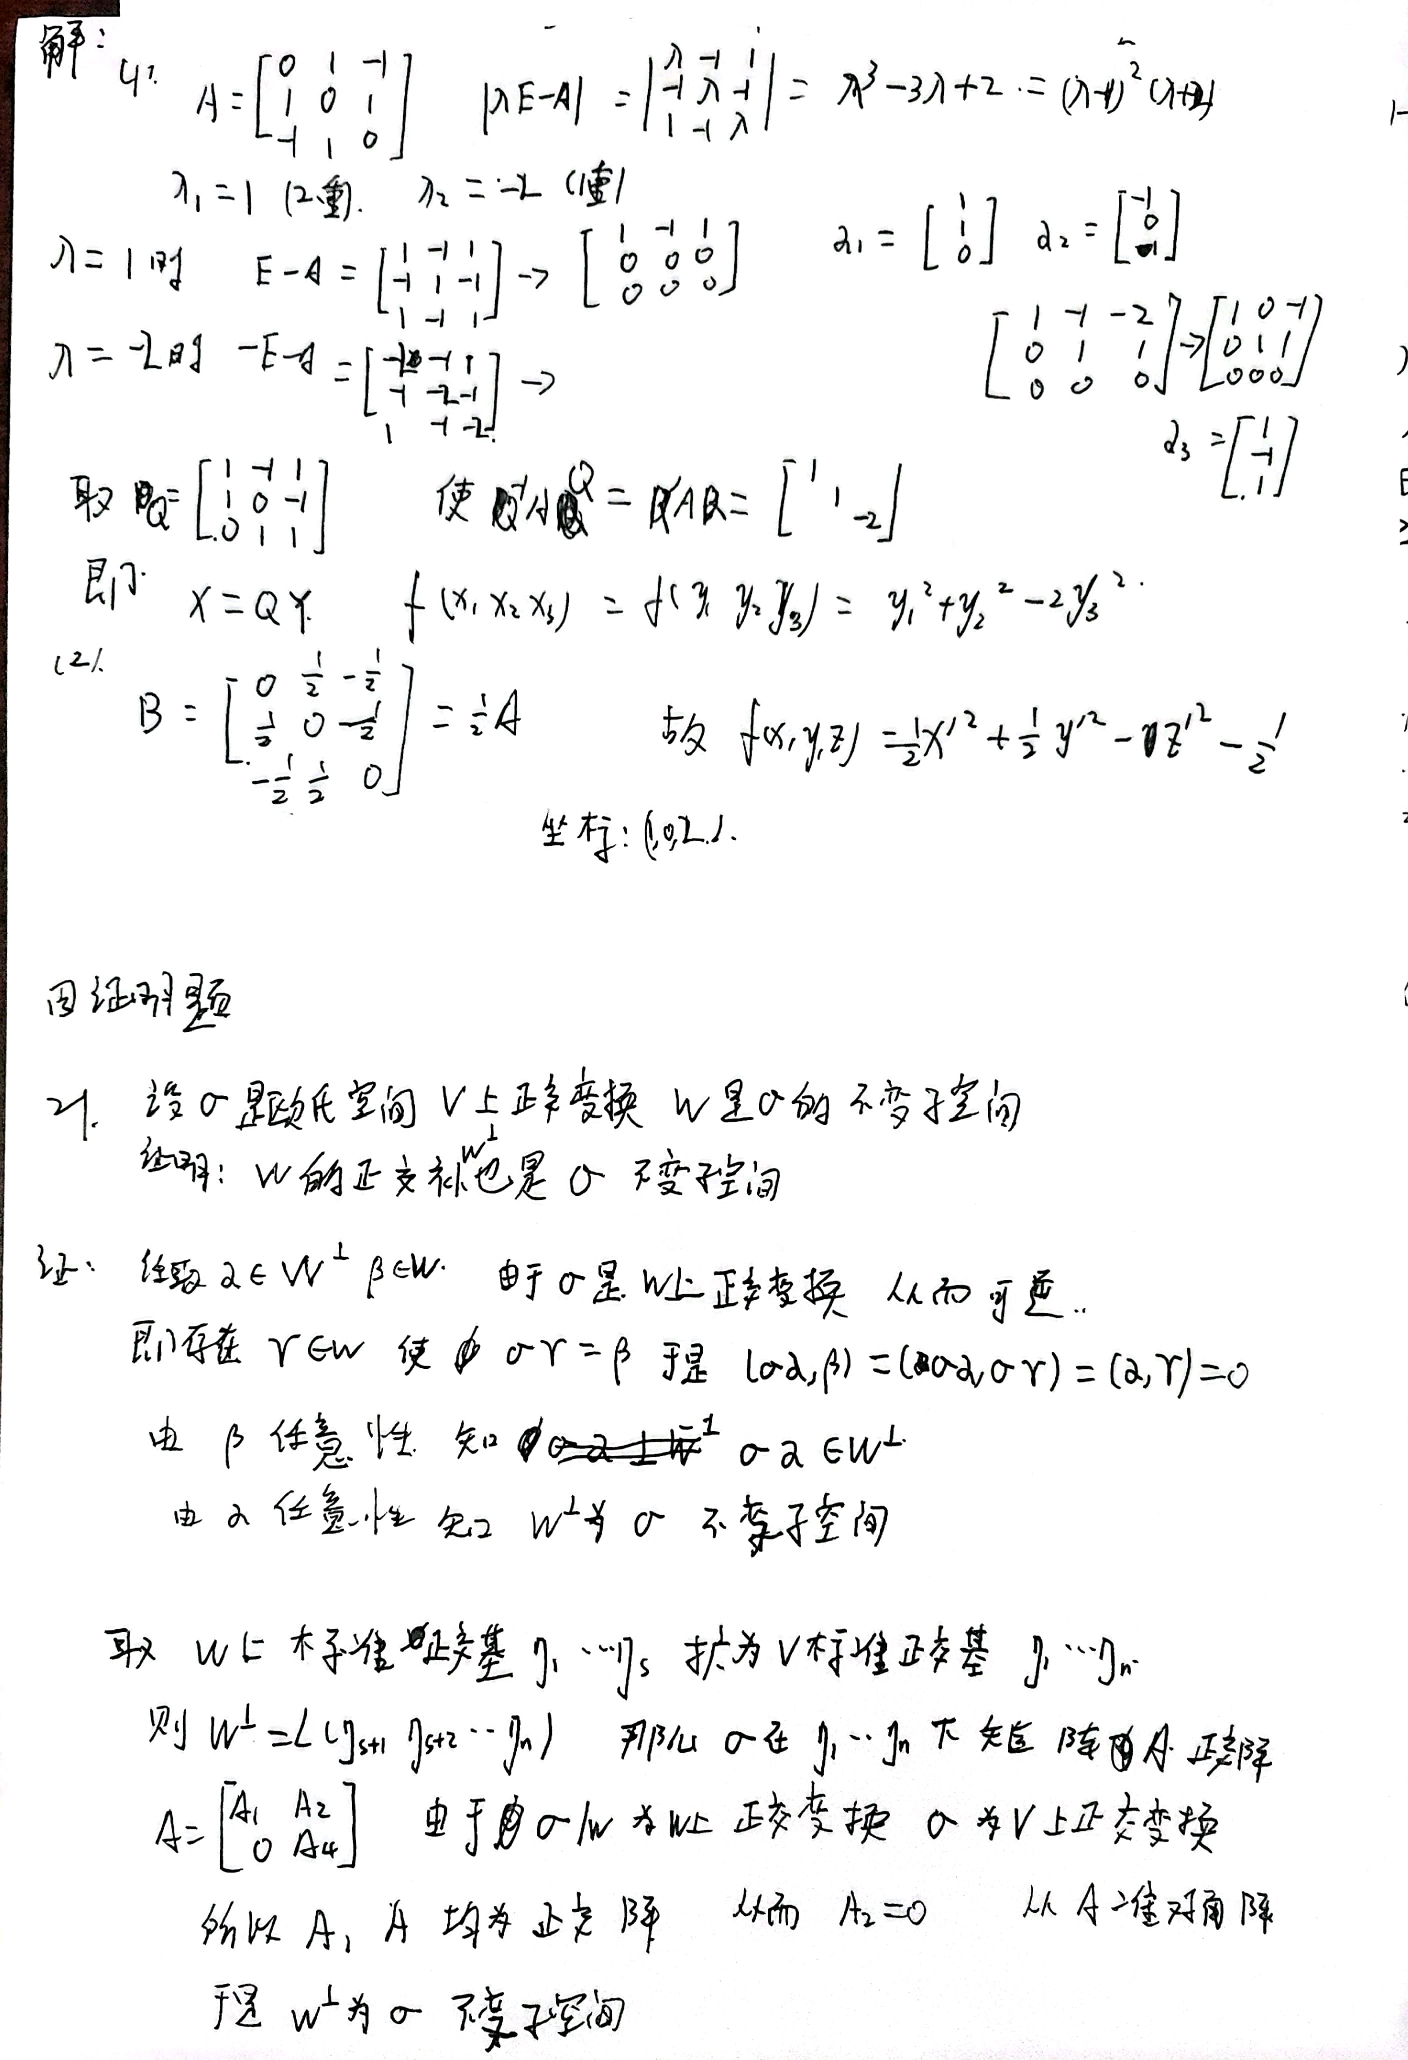 解: (1). A = [0 1 -1; 1 0 1; -1 1 0] |λE-A| = |λ -1 1; -1 λ -1; 1 -1 λ| = λ³-3λ+2 = (λ-1)²(λ+2)
λ₁=1 (2重). λ₂=-2 (1重)
λ=1时 E-A = [1 -1 1; -1 1 -1; 1 -1 1] → [1 -1 1; 0 0 0; 0 0 0] α₁ = [1; 1; 0] α₂ = [-1; 0; 1]
λ=-2时 -E-A = [-2 -1 1; -1 -2 -1; 1 -1 -2] → [1 -1 -2; 0 1 1; 0 0 0] → [1 0 -1; 0 1 1; 0 0 0]
α₃ = [1; -1; 1]
取 Q = [1 -1 1; 1 0 -1; 0 1 1] 使 Q⁻¹AQ = Q'AQ = [1 1 -2]
即 X=QY. f(x₁ x₂ x₃) = f(y₁ y₂ y₃) = y₁²+y₂²-2y₃².
(2). B = [0 1/2 -1/2; 1/2 0 -1/2; -1/2 1/2 0] = 1/2 A 故 f(x,y,z) = 1/2 x'² + 1/2 y'² - z'² - 1/2
坐标: (1,0,2).
四证明题
21. 设σ是欧氏空间 V上正交变换 W是σ的不变子空间
证明: W的正交补W⊥也是σ 不变子空间
证: 任取 α∈W⊥ β∈W. 由于σ是W上正交变换 从而可逆..
即存在 γ∈W 使 σγ=β 于是 (σα,β)=(σα,σγ)=(α,γ)=0
由 β 任意性 知 σα∈W⊥.
由 α 任意性 知 W⊥为σ 不变子空间
取 W上 标准正交基 η₁…ηs 扩为V标准正交基 η₁…ηn.
则 W⊥=L(ηs+1 ηs+2…ηn) 那么 σ在 η₁…ηn 下矩阵 A 正交阵
A = [A₁ A₂; 0 A₄] 由于 σ/W 为W上 正交变换 σ为V上正交变换
所以 A₁ A 均为正交阵 从而 A₂=0 从 A 准对角阵
于是 W⊥为σ 不变子空间